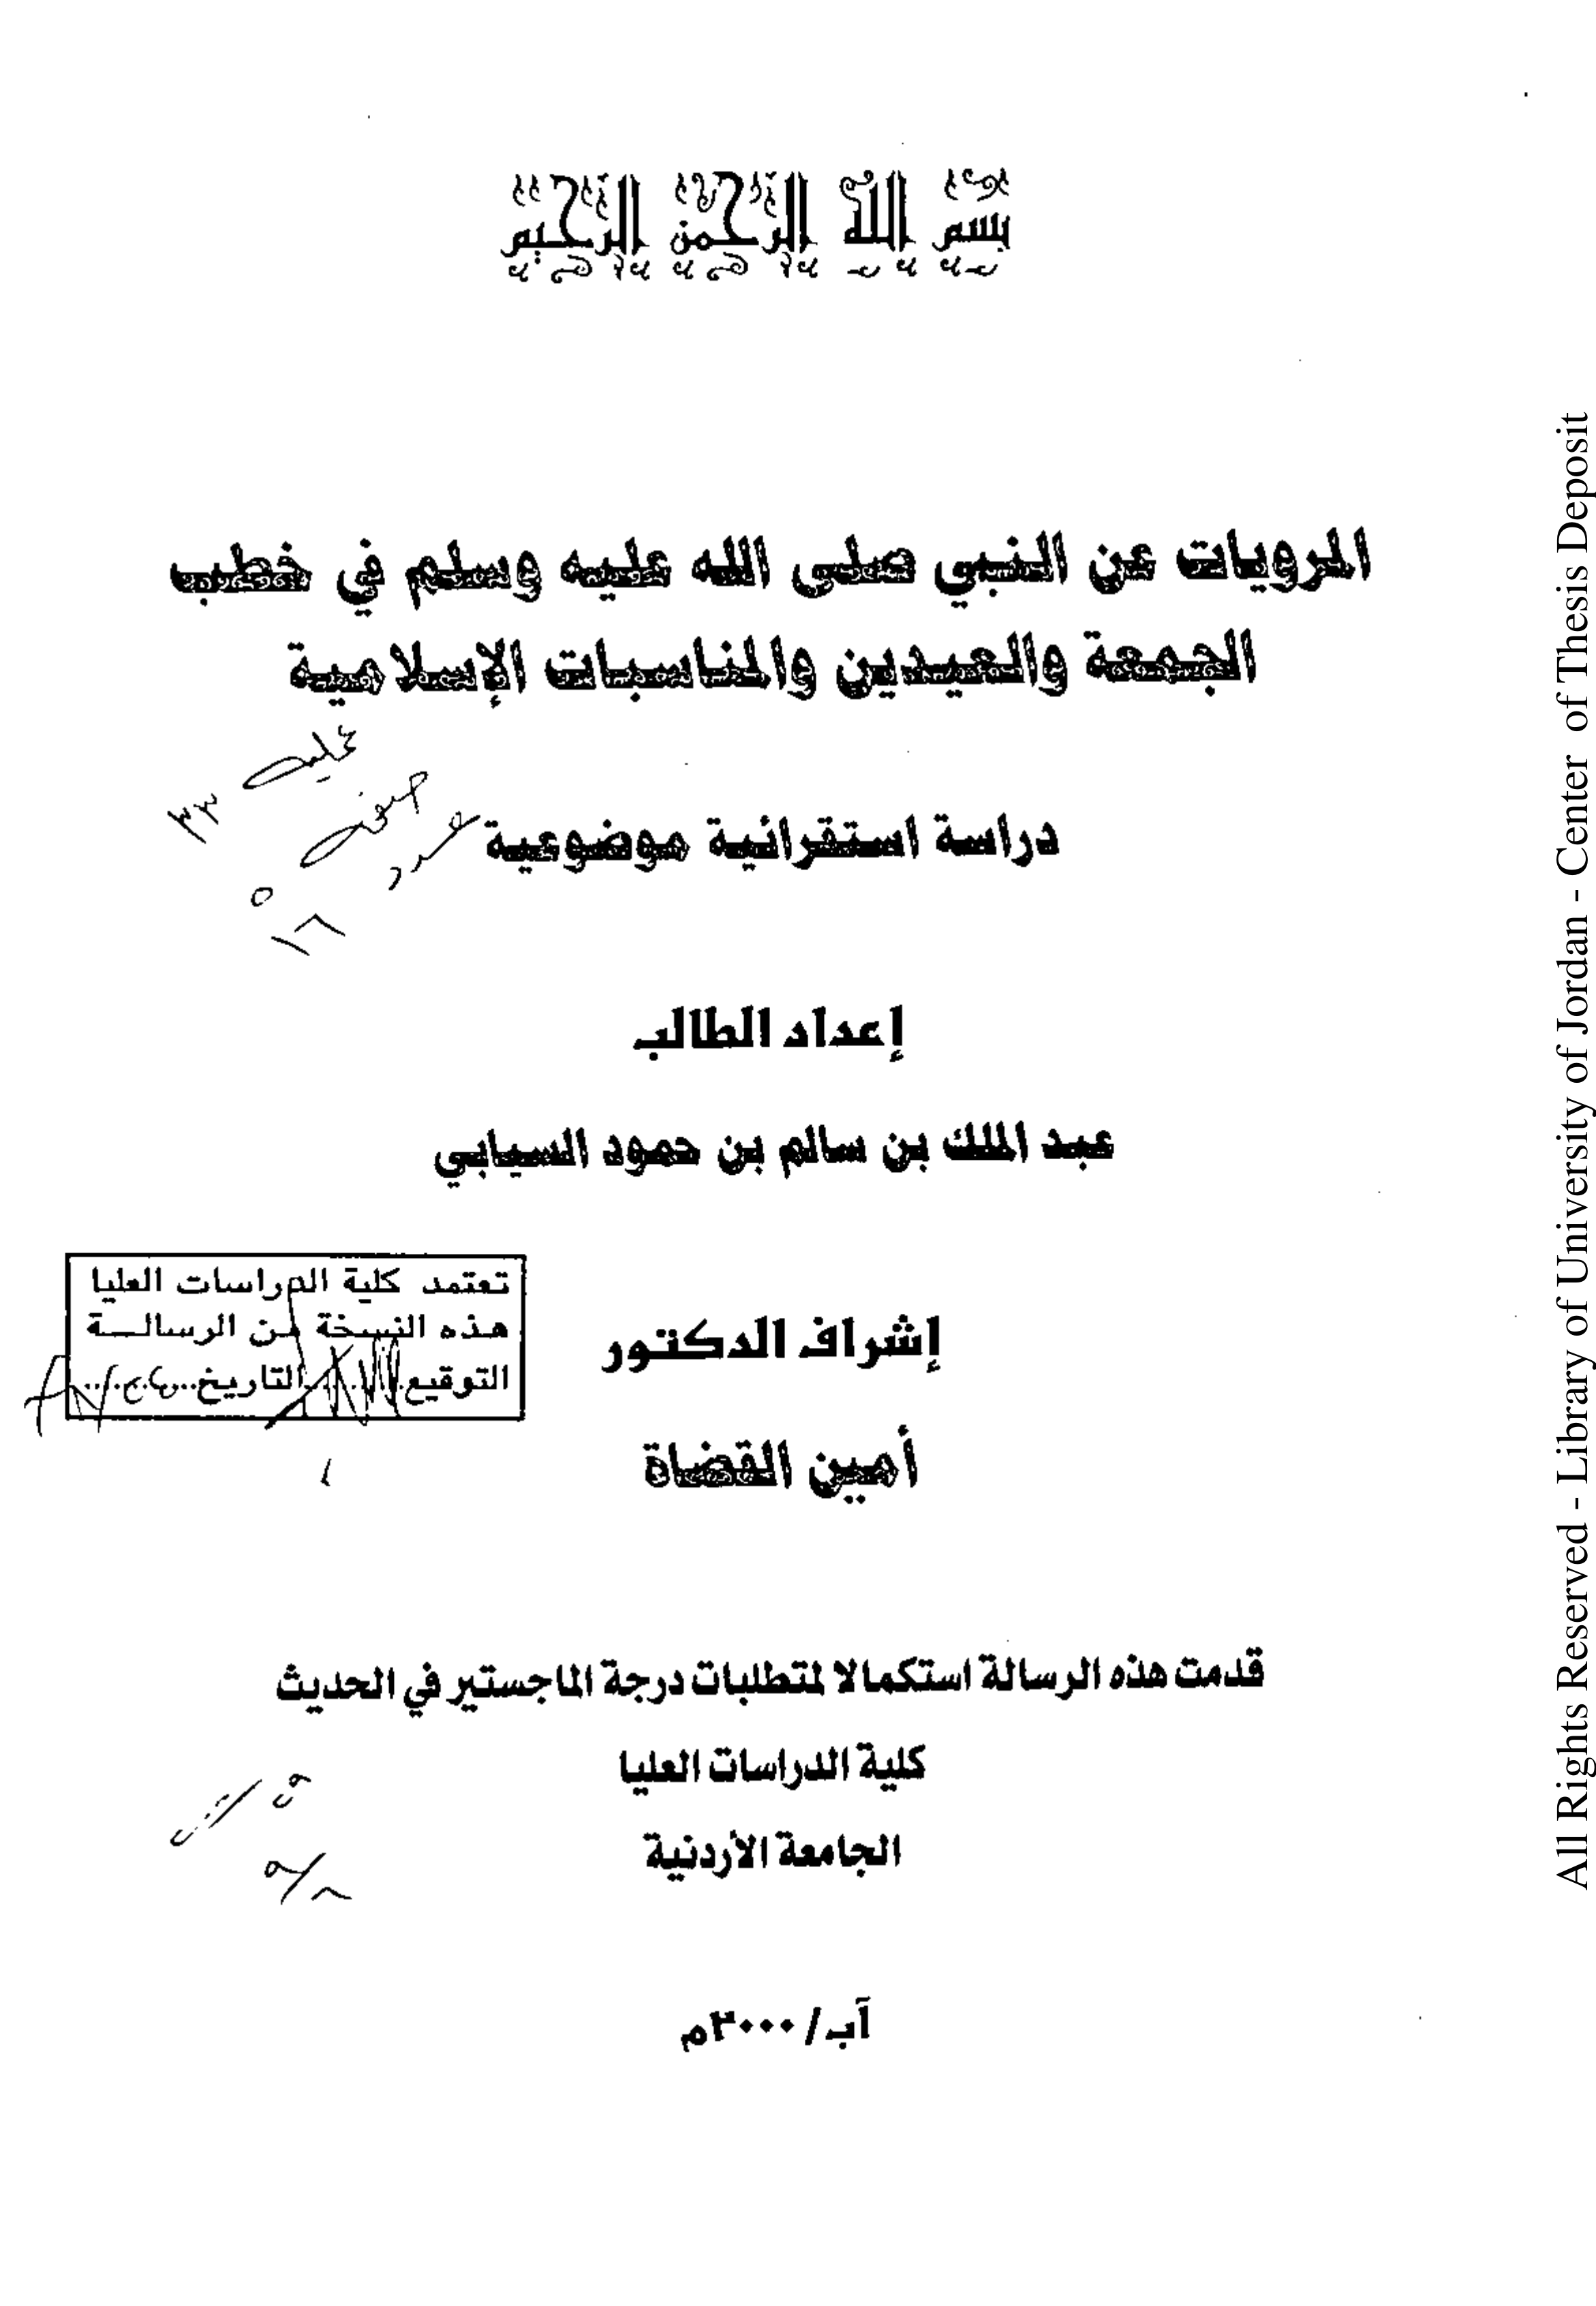 بسم الله الرحمن الرحيم
المرويات عن النبي صلى الله عليه وسلم في خطب
الجمعة والعيدين والمناسبات الإسلامية
دراسة استقرائية موضوعية
إعداد الطالب
عبد الملك بن سالم بن حمود السيابي
تعتمد كلية الدراسات العليا
هذه النسخة من الرسالة
التوقيع........التاريخ........
إشراف الدكتور
أمين القضاة
قدمت هذه الرسالة استكمالا لمتطلبات درجة الماجستير في الحديث
كلية الدراسات العليا
الجامعة الأردنية
آب / ٢٠٠٠م
All Rights Reserved - Library of University of Jordan - Center of Thesis Deposit